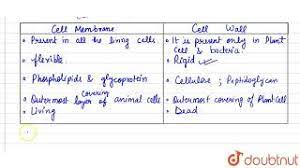 Cell Membrane Cell Wall
• Present in all the living cells • It is present only in Plant
cell & bacteria
• flexible • Rigid
• Phospholipids & glycoprotein • Cellulose; Peptidoglycan
covering
• Outermost layer of animal cells • Outermost covering of Plant Cell
• Living • Dead
doubtnut